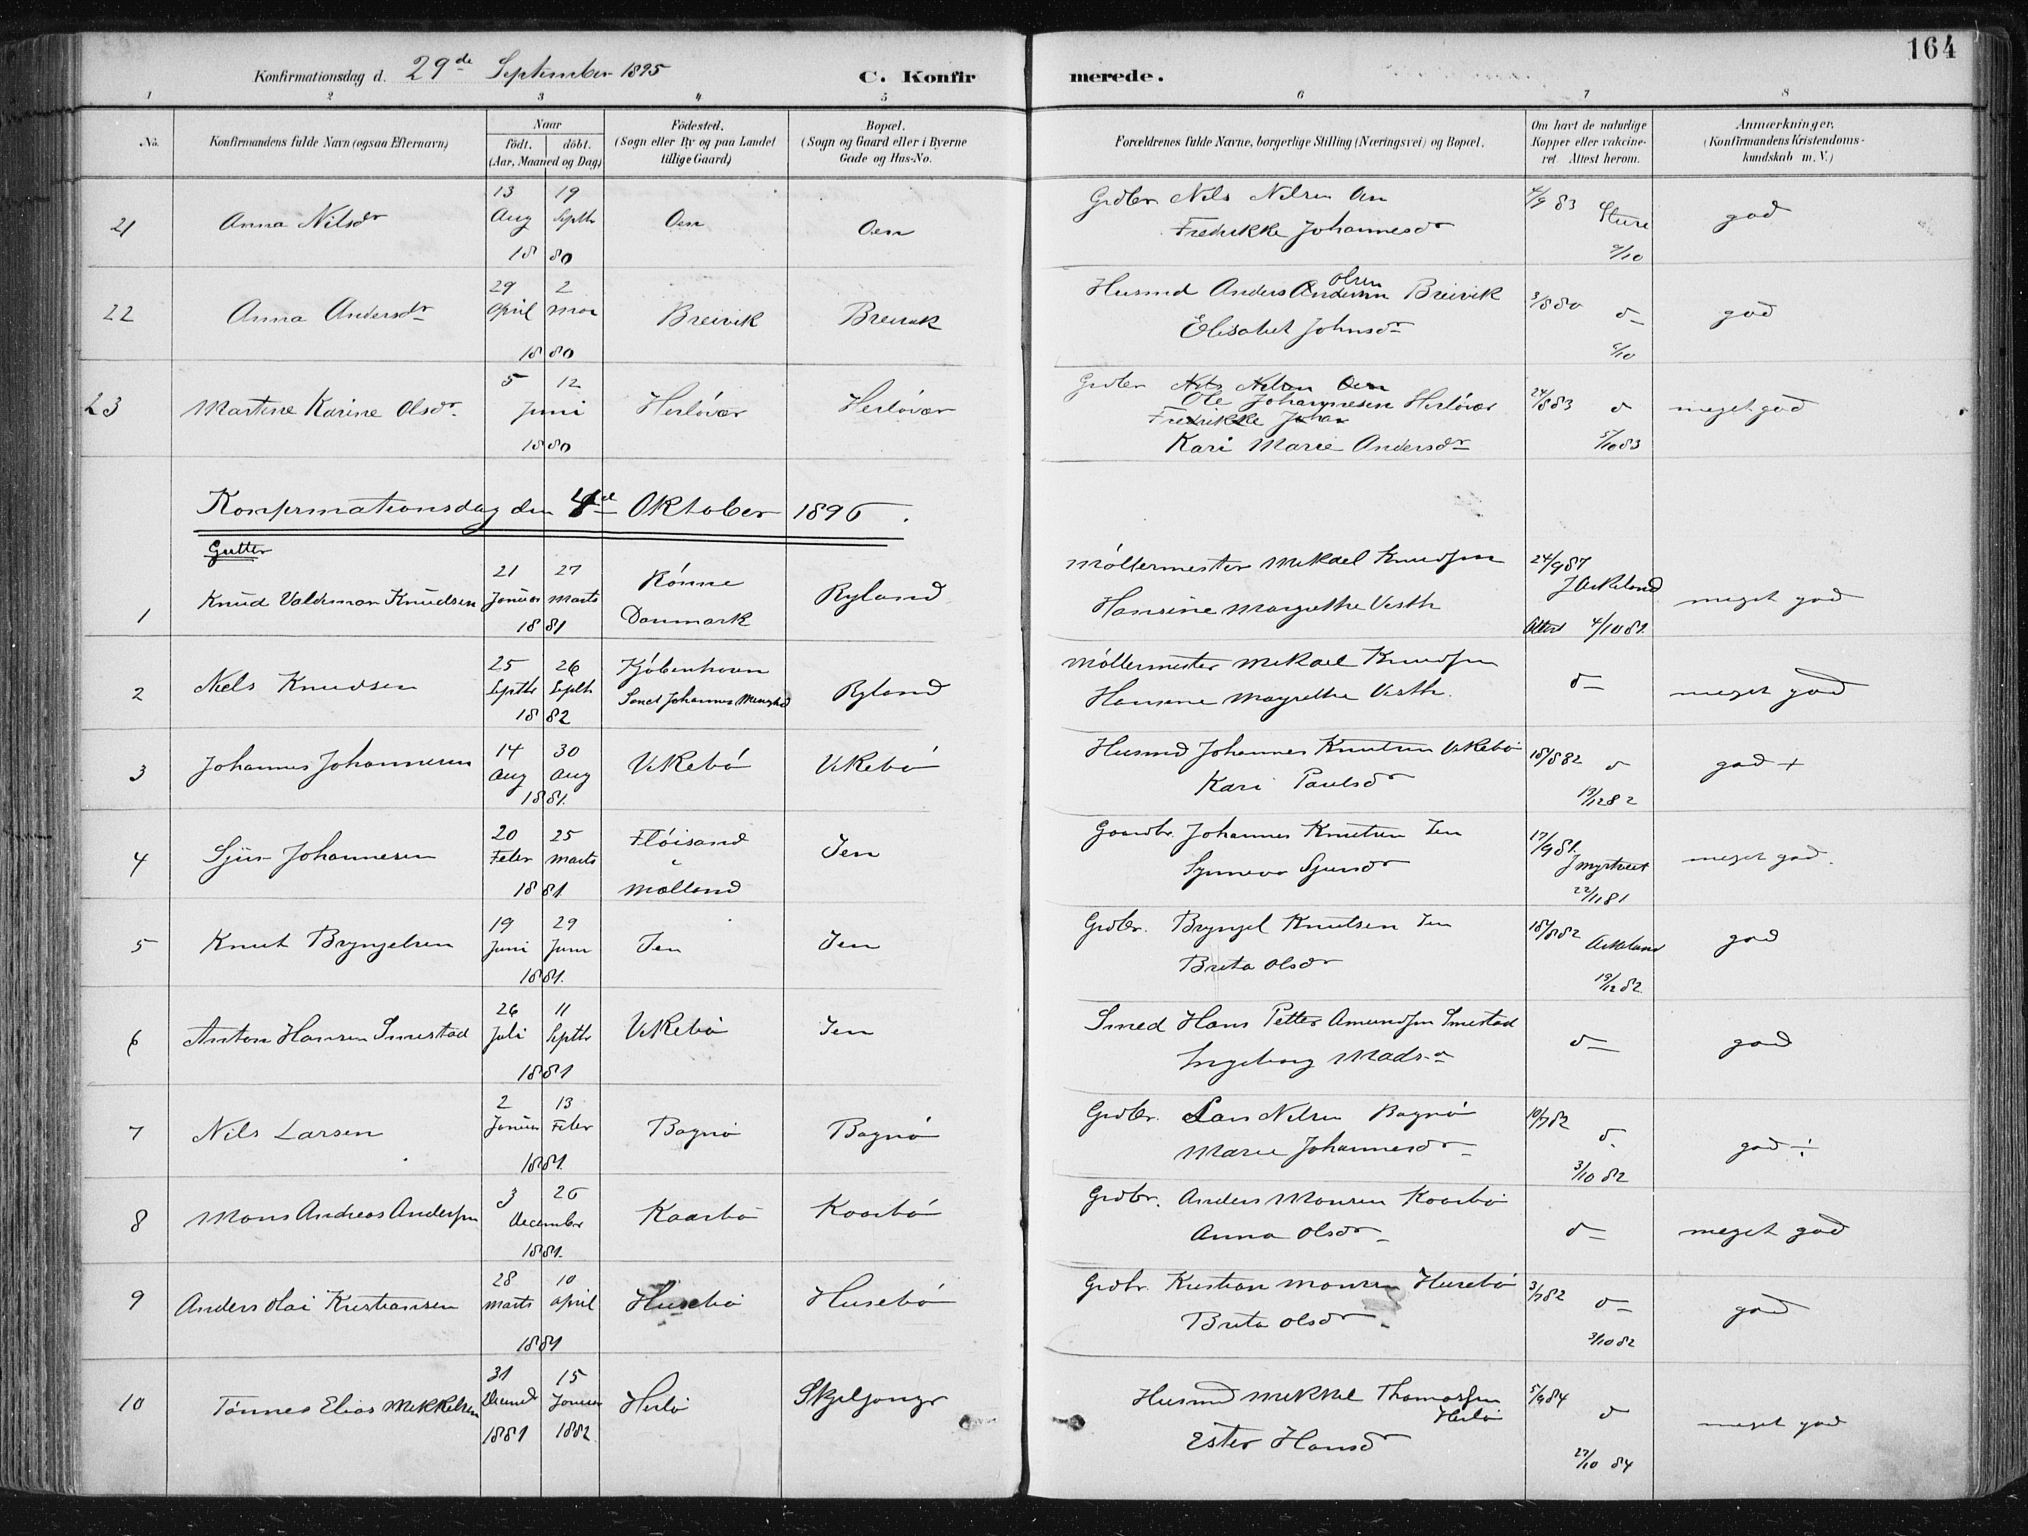 164
Konfirmationsdag d. 29de September 1895
C. Konfirmerede.
1 2 3 4 5 6 7 8
No.
Konfirmandens fulde Navn (ogsaa Efternavn)
Naar
födt. döbt.
(Aar, Maaned og Dag)
Födested.
(Sogn eller By og paa Landet
tillige Gaard)
Bopæl.
(Sogn og Gaard eller i Byerne
Gade og Hus-No.
Forældrenes fulde Navne, borgerlige Stilling (Næringsvei) og Bopæl.
Om havt de naturlige
Kopper eller vakcine-
ret Attest herom.
Anmærkninger.
(Konfirmandens Kristendoms-
kundskab m. V.)
21 Anna Nilsdr 13 Aug 19 Septbr 1880 Oen Oen
Grdbr Nils Nilsen Oen
Fredrikke Johannesdr
4/9 83 Sture
god
22 Anna Andersdr 29 April 2 Mai 1880 Breivik Breivik
Husmd Anders Olsen Breivik
Elisabet Johnsdr
god
23 Martine Karine Olsdr 5 12 Juni 1880 Herlövær Herlövær
Grdbr Nils Nilsen Oen
Ole Johannesen Herlövær
Fredrikke Johan
Kari Marie Andersdr
24/8 83
5/10 83
meget god
Konfirmationsdag den 4de Oktober 1896.
Gutter
1 Knud Valdemar Knudsen 21 Januar 27 Marts 1881 Rönne Danmark Ryland
Møllermester Mikael Knudsen
Hansine Margrethe Vesth
24/9 87
Attest 4/10 87.
meget god
2 Niels Knudsen 25 Septbr 26 Septbr 1882 Kjöbenhavn
Sanct Johannes Menighed Ryland
Møllermester Mikael Knudsen
Hansine Magrethe Vesth.
d— meget god
3 Johannes Johannesen 14 Aug 30 Aug 1881. Vikebö Vikebö
Husmd Johannes Knutsen Vikebö
Kari Paulsdr
18/8 82 d
19/12 82
god +
4 Sjur Johannesen 20 Febr 25 Marts 1881 Flöisand
i
Mælland Ien
Gaardbr. Johannes Knutsen Ien
Synneva Sjursdr
17/9 81. J Myrtveit
22/11 81
meget god.
5 Knut Bryngelsen 19 Juni 29 Juni 1881. Ien Ien
Grdbr. Bryngel Knutsen Ien
Brita Olsdr
18/8 82 Askeland
19/12 82.
god
6 Anton Hansen Smestad 26 Juli 11 Septbr 1881 Vikebö Ien
Smed Hans Petter Amundsen Smestad
Ingeborg Madsdr
d— god
7 Nils Larsen 2 Januar 13 Febr 1881. Bognö Bognö
Grdbr. Lars Nilsen Bognö
Marie Johannesdr
10/9 82 d.
3/10 82
god ÷
8 Mons Andreas Andersen 3 26 December 1881. Kaarbö Kaarbö
Grdbr. Anders Monsen Kaarbö
Anna Olsdr
d— meget god
9 Anders Olai Kristiansen 28 Marts 10 April 1881 Husebö Husebö
Grdbr. Kristian Monsen Husebö
Brita Olsdr
3/7 82 d—
3/10 82
god
10 Tönnes Elias Mikkelsen 31 1881 15 Januar 1882 Herlö
Husmd Mikkel Thomassen
Herlö
Ester Hansdr
5/9 84 d
27/10 84
meget god